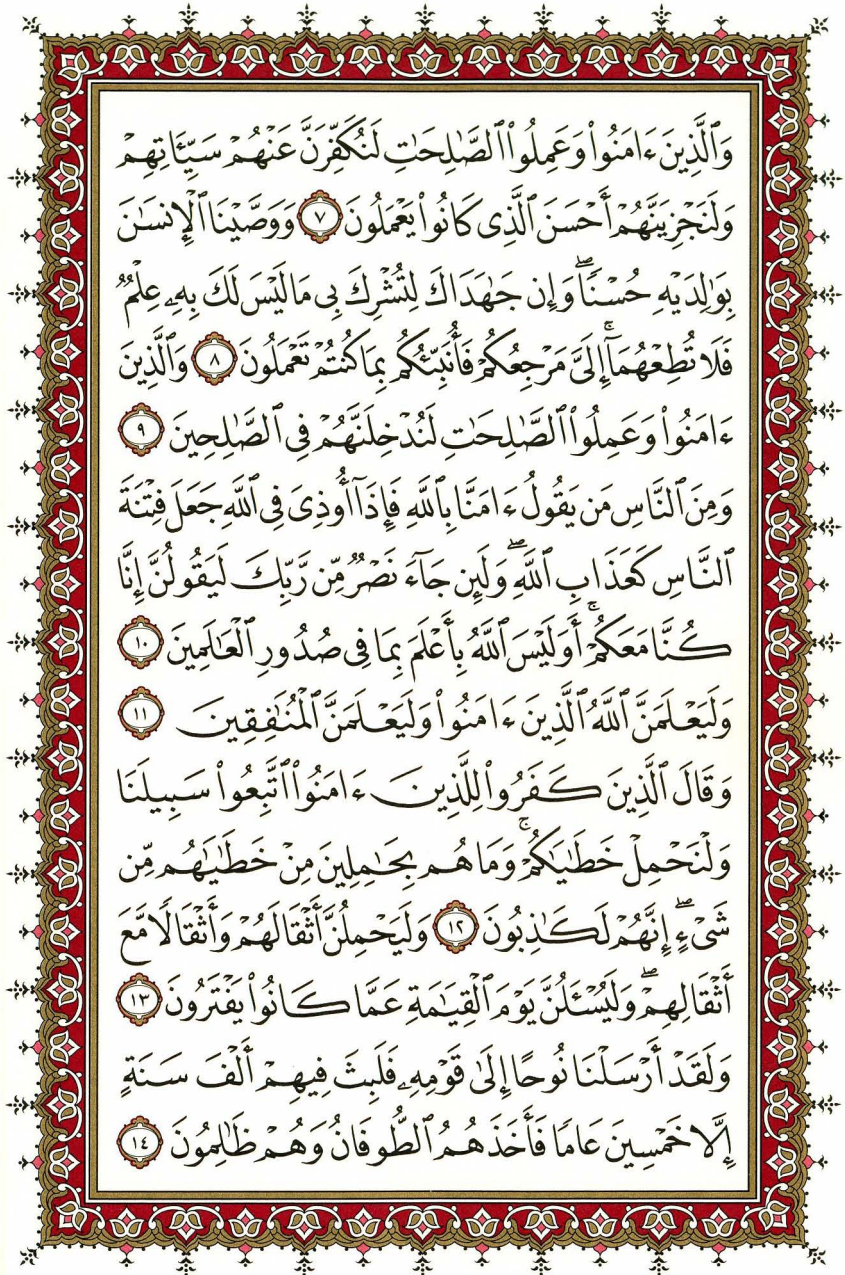 وَٱلَّذِينَ ءَامَنُوا۟ وَعَمِلُوا۟ ٱلصَّـٰلِحَـٰتِ لَنُكَفِّرَنَّ عَنْهُمْ سَيِّـَٔاتِهِمْ
وَلَنَجْزِيَنَّهُمْ أَحْسَنَ ٱلَّذِى كَانُوا۟ يَعْمَلُونَ ٧ وَوَصَّيْنَا ٱلْإِنسَـٰنَ
بِوَٰلِدَيْهِ حُسْنًا ۖ وَإِن جَـٰهَدَاكَ لِتُشْرِكَ بِى مَا لَيْسَ لَكَ بِهِۦ عِلْمٌ
فَلَا تُطِعْهُمَآ ۚ إِلَىَّ مَرْجِعُكُمْ فَأُنَبِّئُكُم بِمَا كُنتُمْ تَعْمَلُونَ ٨ وَٱلَّذِينَ
ءَامَنُوا۟ وَعَمِلُوا۟ ٱلصَّـٰلِحَـٰتِ لَنُدْخِلَنَّهُمْ فِى ٱلصَّـٰلِحِينَ ٩
وَمِنَ ٱلنَّاسِ مَن يَقُولُ ءَامَنَّا بِٱللَّهِ فَإِذَآ أُوذِىَ فِى ٱللَّهِ جَعَلَ فِتْنَةَ
ٱلنَّاسِ كَعَذَابِ ٱللَّهِ ۖ وَلَئِن جَآءَ نَصْرٌ مِّن رَّبِّكَ لَيَقُولُنَّ إِنَّا
كُنَّا مَعَكُمْ ۚ أَوَلَيْسَ ٱللَّهُ بِأَعْلَمَ بِمَا فِى صُدُورِ ٱلْعَـٰلَمِينَ ١٠
وَلَيَعْلَمَنَّ ٱللَّهُ ٱلَّذِينَ ءَامَنُوا۟ وَلَيَعْلَمَنَّ ٱلْمُنَـٰفِقِينَ ١١
وَقَالَ ٱلَّذِينَ كَفَرُوا۟ لِلَّذِينَ ءَامَنُوا۟ ٱتَّبِعُوا۟ سَبِيلَنَا
وَلْنَحْمِلْ خَطَـٰيَـٰكُمْ ۚ وَمَا هُم بِحَـٰمِلِينَ مِنْ خَطَـٰيَـٰهُم مِّن
شَىْءٍ ۖ إِنَّهُمْ لَكَـٰذِبُونَ ١٢ وَلَيَحْمِلُنَّ أَثْقَالَهُمْ وَأَثْقَالًا مَّعَ
أَثْقَالِهِمْ ۖ وَلَيُسْـَٔلُنَّ يَوْمَ ٱلْقِيَـٰمَةِ عَمَّا كَانُوا۟ يَفْتَرُونَ ١٣
وَلَقَدْ أَرْسَلْنَا نُوحًا إِلَىٰ قَوْمِهِۦ فَلَبِثَ فِيهِمْ أَلْفَ سَنَةٍ
إِلَّا خَمْسِينَ عَامًا فَأَخَذَهُمُ ٱلطُّوفَانُ وَهُمْ ظَـٰلِمُونَ ١٤